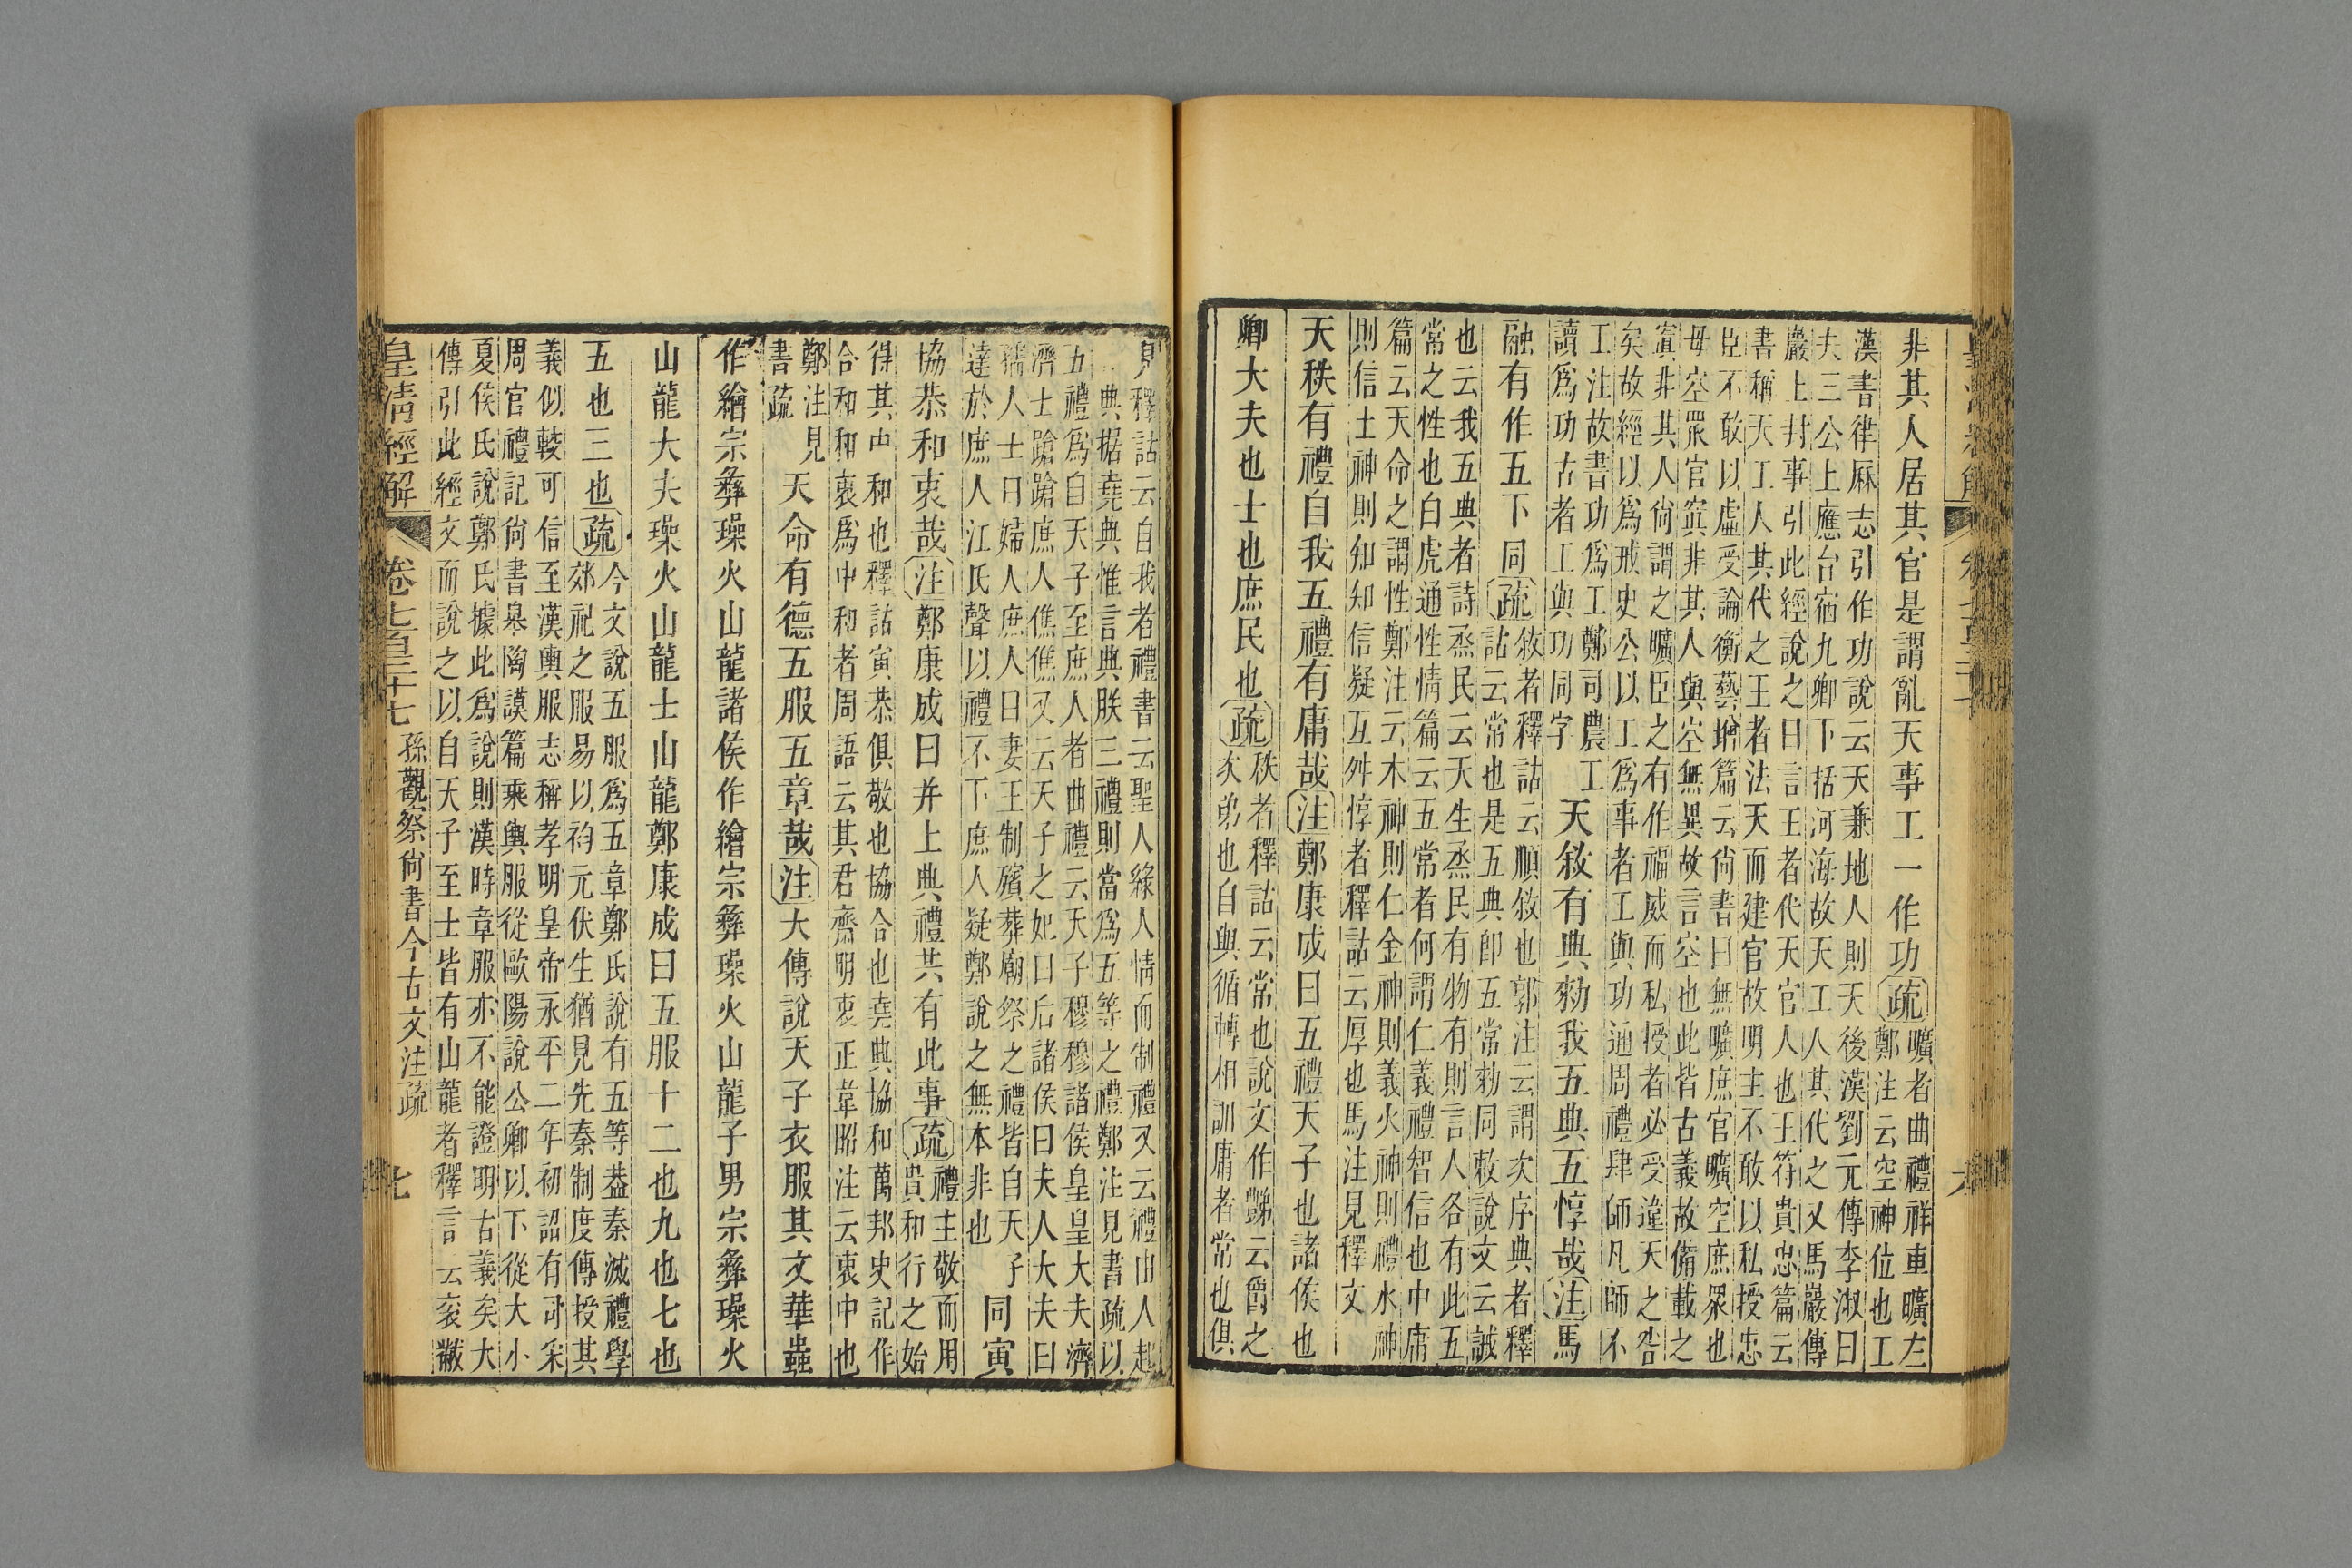 非其人居其官是謂亂天事工一作功疏曠者曲禮祥車曠左
鄭注云空神位也工
漢書律厤志引作功說云天兼地人則天後漢劉元傳李淑曰
夫三公上應台宿九卿下括河海故天工人其代之又馬嚴傳
嚴上封事引此經說之曰言王者代天官人也王符貴忠篇云
書稱天工人其代之王者法天而建官故明主不敢以私授忠
臣不敢以虛受論衡藝增篇云尙書曰無曠庶官曠空庶眾也
毋空眾官寘非其人與空無異故言空也此皆古義故備載之
寘非其人尙謂之曠臣之有作福威而私授者必受違天之咎
矣故經以爲戒史公以工爲事者工與功通周禮肆師凡師不
工注故書功爲工鄭司農工
讀爲功古者工與功同字
天敘有典勑我五典五惇哉注馬
融有作五下同疏敘者釋詁云順敘也郭注云謂次序典者釋
詁云常也是五典卽五常勑同敕說文云誡
也云我五典者詩烝民云天生烝民有物有則言人各有此五
常之性也白虎通性情篇云五常者何謂仁義禮智信也中庸
篇云天命之謂性鄭注云木神則仁金神則義火神則禮水神
則信土神則知知知信疑互舛惇者釋詁云厚也馬注見釋文
天秩有禮自我五禮有庸哉注鄭康成曰五禮天子也諸侯也
卿大夫也士也庶民也疏秩者釋詁云常也說文作豑云爵之
次弟也自與循轉相訓庸者常也俱
見釋詁云自我者禮書云聖人緣人情而制禮又云禮由人起
典据堯典惟言典朕三禮則當爲五等之禮鄭注見書疏以
五禮爲自天子至庶人者曲禮云天子穆穆諸侯皇皇大夫濟
濟士蹌蹌庶人僬僬又云天子之妃曰后諸侯曰夫人大夫曰
孺人士曰婦人庶人曰妻王制殯葬廟祭之禮皆自天子
達於庶人江氏聲以禮不下庶人疑鄭說之無本非也
同寅
協恭和衷哉注鄭康成曰并上典禮共有此事疏禮主敬而用
貴和行之始
得其中和也釋詁寅恭俱敬也協合也堯典協和萬邦史記作
合和和衷爲中和者周語云其君齊明衷正韋昭注云衷中也
鄭注見
書疏
天命有德五服五章哉注大傳說天子衣服其文華蟲
作繪宗彝璪火山龍諸侯作繪宗彝璪火山龍子男宗彝璪火
山龍大夫璪火山龍士山龍鄭康成曰五服十二也九也七也
五也三也疏今文說五服爲五章鄭氏說有五等葢秦滅禮學
郊祀之服易以袀元伏生猶見先秦制度傳授其
義似較可信至漢輿服志稱孝明皇帝永平二年初詔有司采
周官禮記尙書皋陶謨篇乘輿服從歐陽說公卿以下從大小
夏侯氏說鄭氏據此爲說則漢時章服亦不能證明古義矣大
傳引此經文而說之以自天子至士皆有山龍者釋言云衮黻
皇清經解
卷七百三十七
孫觀察尙書今古文注疏
七